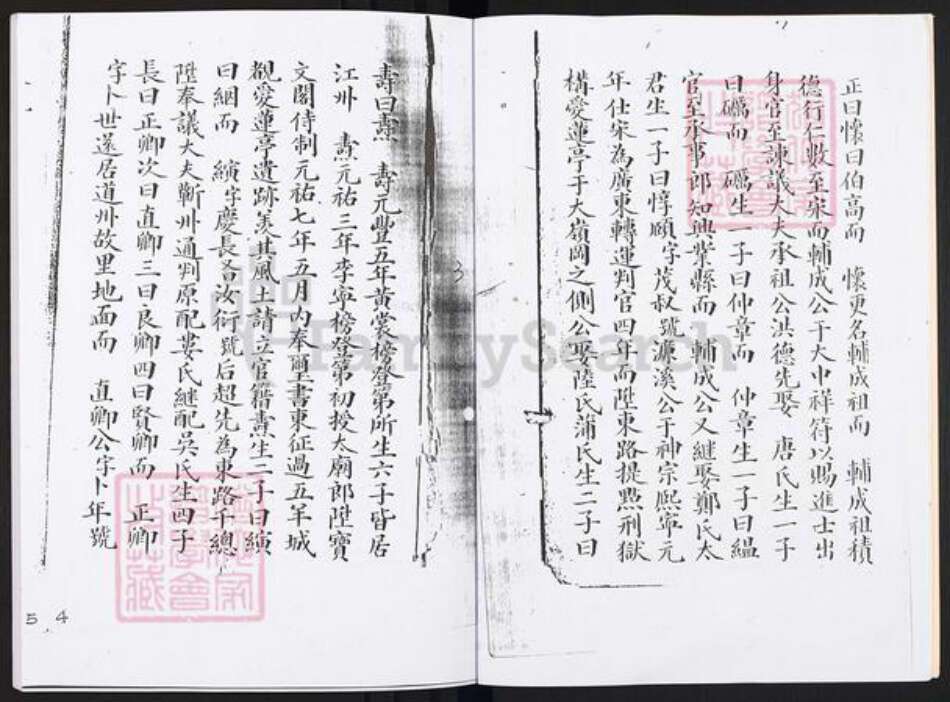 正曰懷曰伯高而　懷更名輔成祖而　輔成祖積
德行仁數至宋而輔成公于大中祥符以賜進士出
身官至諫議大夫承祖公洪德先娶　唐氏生一子
曰礪而　礪生一子曰仲章而　仲章生一子曰縕
官至承事郎知興業縣而　輔成公又継娶鄭氏太
君生一子曰惇頤字茂叔號濂溪公于神宗熙寧元
年仕宋為廣東轉運判官四年而陞東路提點刑獄
構愛蓮亭于大嶺岡之側公娶陸氏蒲氏生二子曰
壽曰燾　壽元豐五年黃裳榜登第所生六子皆居
江州　燾元祐三年李寧榜登第初授太廟郎陞寶
文閣侍制元祐七年五月內奉璽書東征過五羊城
覩愛蓮亭遺跡羙其風土請立官籍燾生二子曰縯
曰絪而　縯字慶長名汝衍號后超先為東路千總
陞奉議大夫蘄州通判原配婁氏継配吳氏生四子
長曰正卿次曰直卿三曰良卿四曰賢卿而　正卿
字卜世遂居道州故里地面而　直卿公字卜年號
3
5 4
FamilySearch